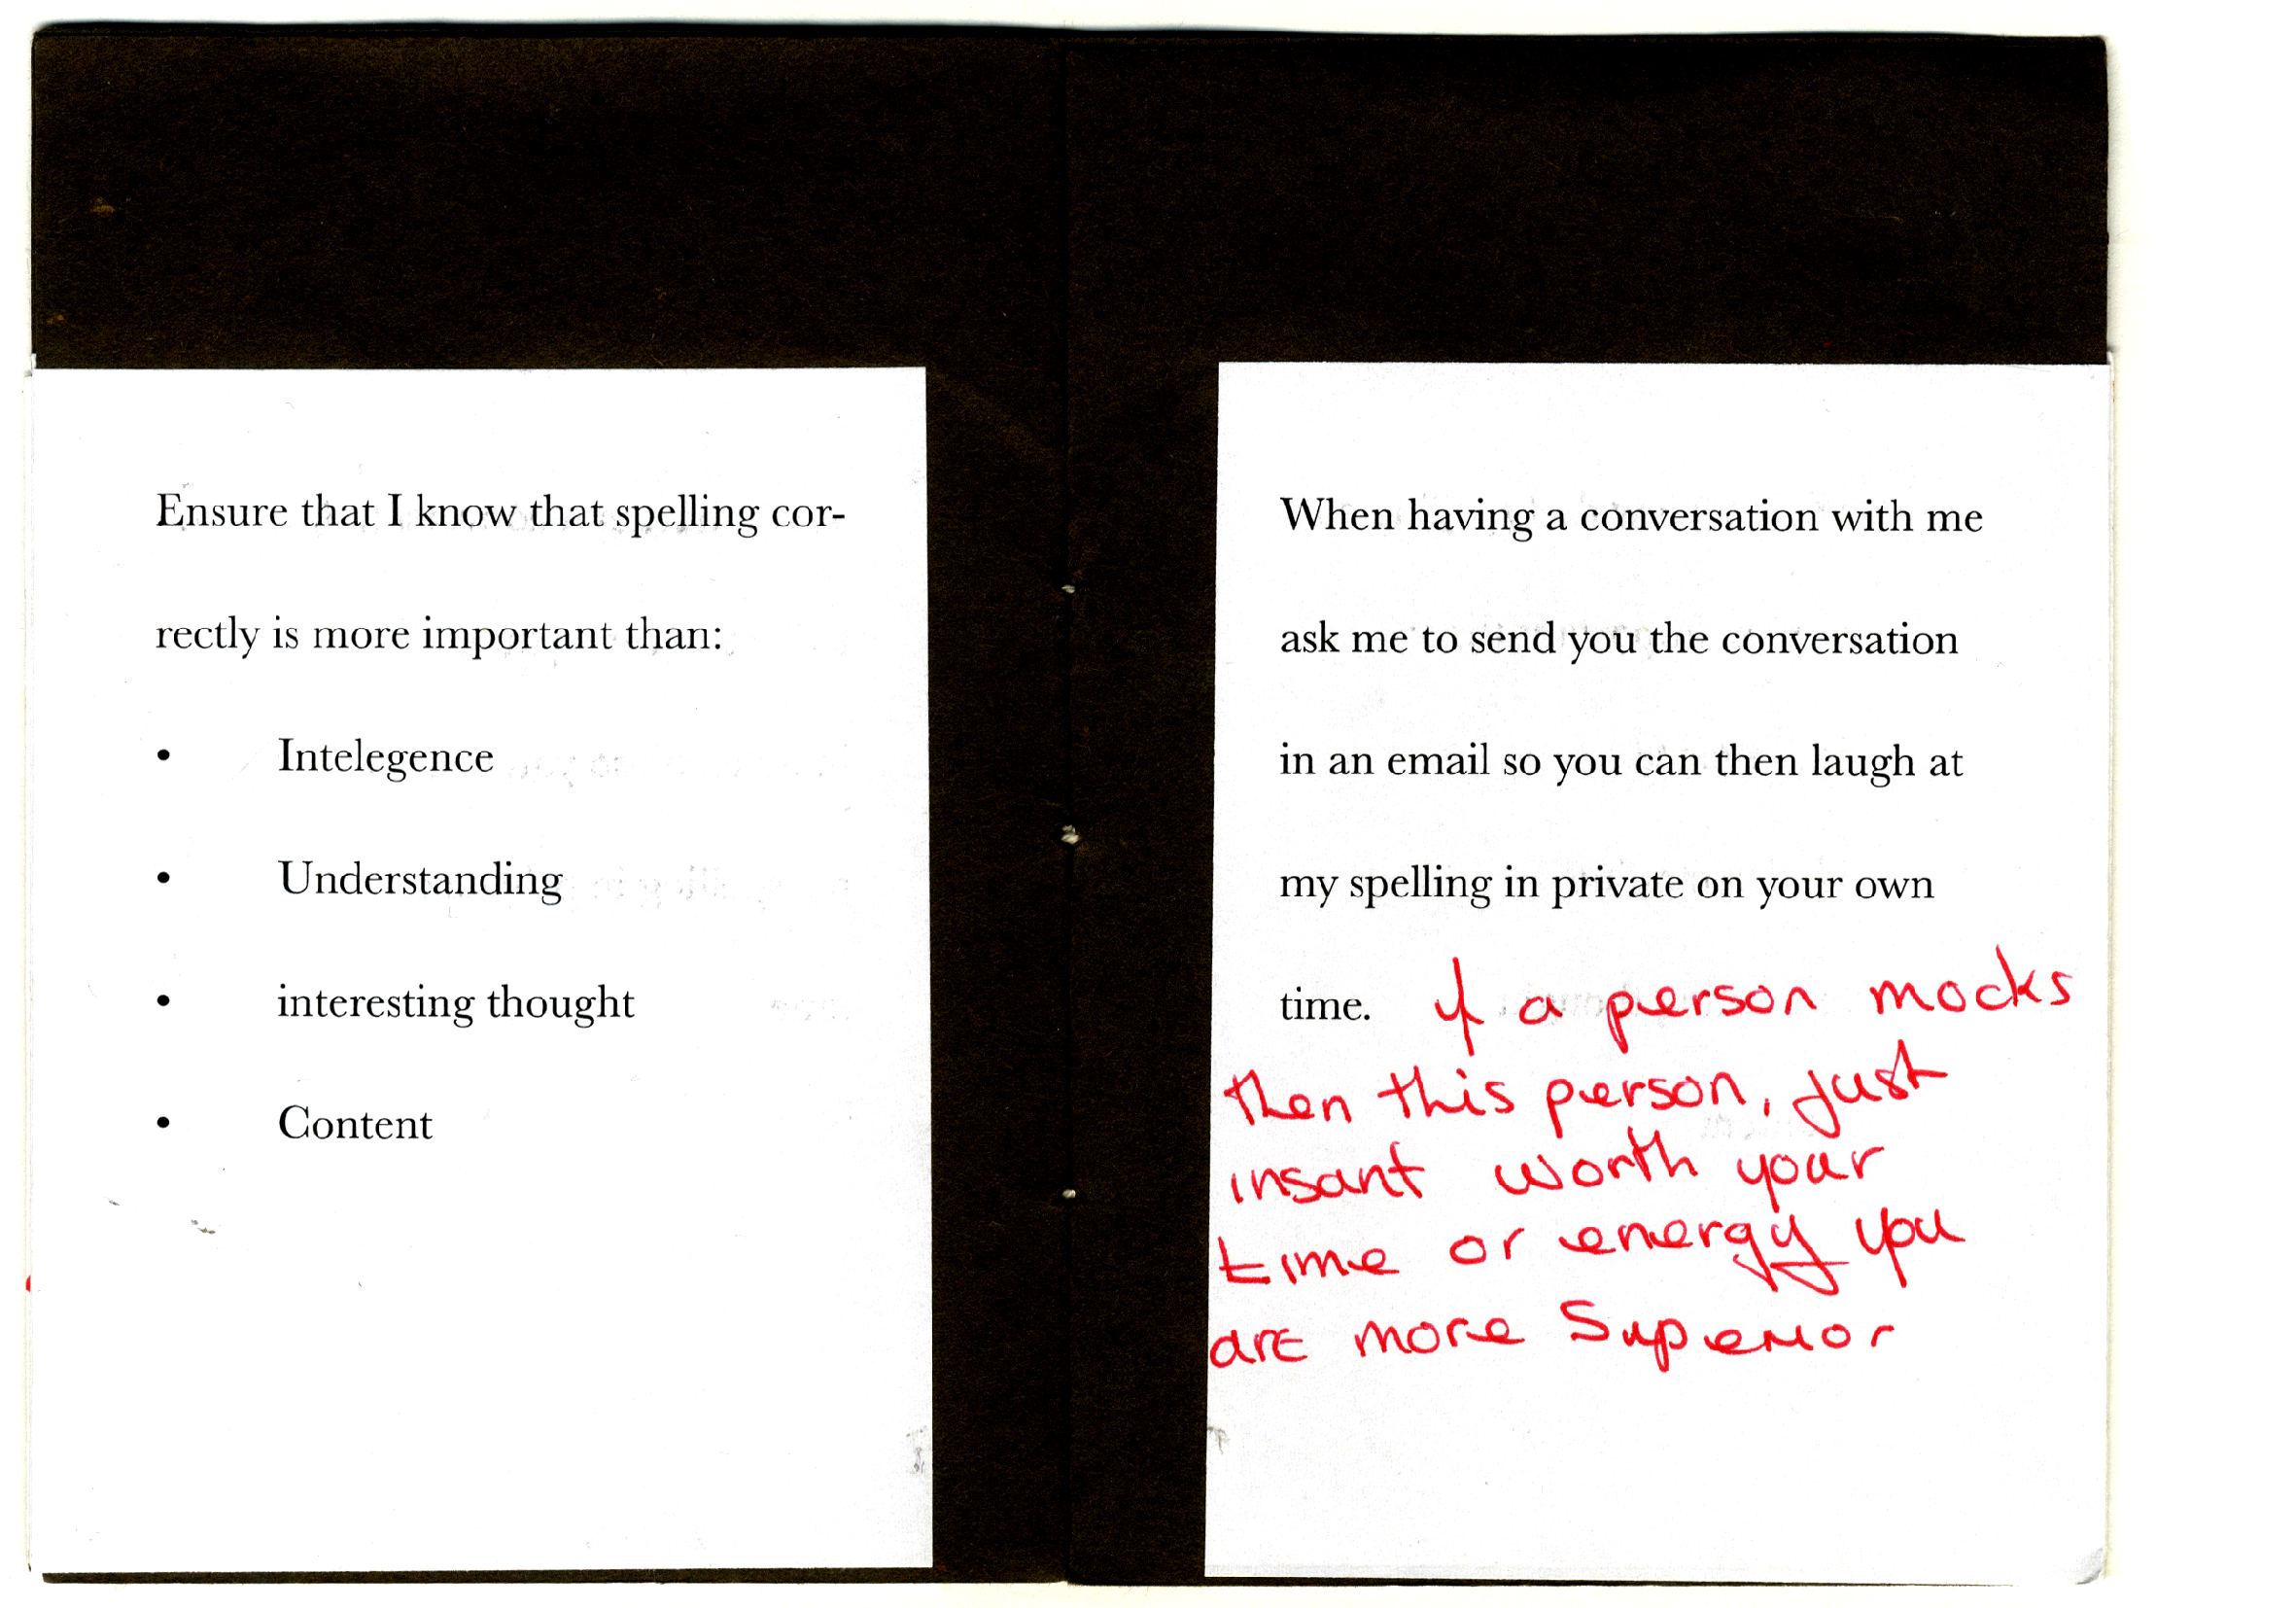 Ensure that I know that spelling cor-
rectly is more important than:
• Intelegence
• Understanding
• interesting thought
• Content
When having a conversation with me
ask me to send you the conversation
in an email so you can then laugh at
my spelling in private on your own
time. if a person mocks
then this person, just
insant worth your
time or energy you
are more Superior